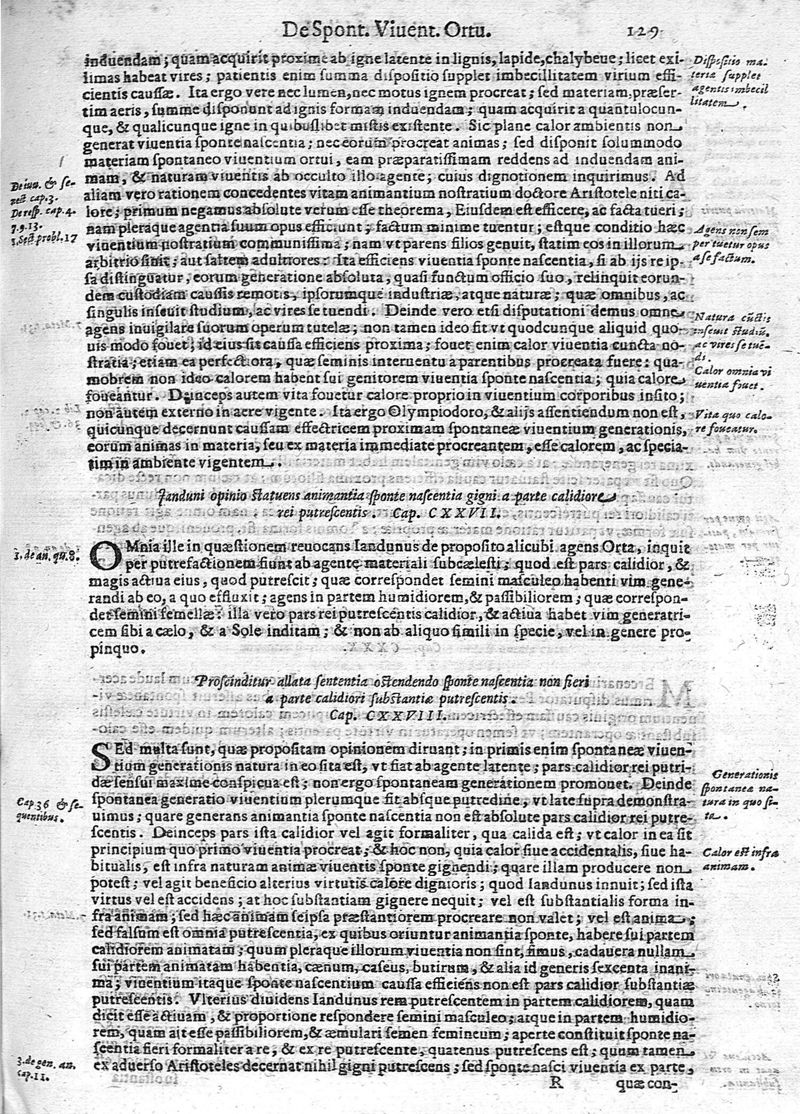 De Spont. Viuent. Ortu. 129
induendam; quam acquirit proxime ab igne latente in lignis, lapide, chalybeue; licet exi-
limas habeat vires; patientis enim summa dispositio supplet imbecillitatem virium effi-
cientis caussæ. Ita ergo vere nec lumen, nec motus ignem procreat; sed materiam, præser-
tim aeris, summe disponunt ad ignis formam induendam; quam acquirit a quantulocun-
que, & qualicunque igne in quibuslibet mistis existente. Sic plane calor ambientis non
generat viuentia sponte nascentia; nec eorum procreat animas; sed disponit solummodo
materiam spontaneo viuentium ortui, eam præparatissimam reddens ad induendam ani-
mam, & naturam viuentis ab occulto illo agente; cuius dignotionem inquirimus. Ad
aliam vero rationem concedentes vitam animantium nostratium doctore Aristotele niti ca-
lore; primum negamus absolute verum esse theorema, Eiusdem est efficere, ac facta tueri;
nam pleraque agentia suum opus efficiunt; factum minime tuentur; estque conditio hæc
viuentium nostratium communissima; nam vt parens filios genuit, statim eos in illorum
arbitrio sinit; aut saltem adultiores: Ita efficiens viuentia sponte nascentia, si ab ijs re ip-
sa distinguatur, eorum generatione absoluta, quasi functum officio suo, relinquit eorun-
dem custodiam caussis remotis, ipsorumque industriæ, atque naturæ; quæ omnibus, ac
singulis inseuit studium, ac vires se tuendi. Deinde vero etsi disputationi demus omne
agens inuigilare suorum operum tutelæ; non tamen ideo fit vt quodcunque aliquid quo-
uis modo fouet; id eius sit caussa efficiens proxima; fouet enim calor viuentia cuncta no-
stratia; etiam ea perfectiora, quæ seminis interuentu a parentibus procreata fuere: qua-
mobrem non ideo calorem habent sui genitorem viuentia sponte nascentia; quia calore
foueantur. Deinceps autem vita fouetur calore proprio in viuentium corporibus insito;
non autem externo in aere vigente. Ita ergo Olympiodoro, & alijs assentiendum non est,
quicunque decernunt caussam effectricem proximam spontaneæ viuentium generationis,
eorum animas in materia, seu ex materia immediate procreantem, esse calorem, ac specia-
tim in ambiente vigentem.
Dispositio ma-
teria supplet
agentis imbecil
litatem.
De iuu. & se-
nect cap. 3.
De resp. cap. 4.
7. 9. 13.
3. Sect probl. 17
Agens non sem
per tuetur opus
a se factum.
Natura cūctis
inseuit studiū,
ac vires se tuē-
di.
Calor omnia vi
uentia fouet.
Vita quo calo-
re foueatur.
Janduni opinio statuens animantia sponte nascentia gigni a parte calidiore
rei putrescentis. Cap. CXXVII.
1. de an. qu. 8.
OMnia ille in quæstionem reuocans Iandunus de proposito alicubi agens Orta, inquit
per putrefactionem fiunt ab agente materiali subcælesti; quod est pars calidior, &
magis actiua eius, quod putrescit; quæ correspondet semini masculeo habenti vim gene-
randi ab eo, a quo effluxit; agens in partem humidiorem, & passibiliorem; quæ correspon-
det semini femellæ: illa vero pars rei putrescentis calidior, & actiua habet vim generatri-
cem sibi a cælo, & a Sole inditam; & non ab aliquo simili in specie, vel in genere pro-
pinquo.
Proscinditur allata sententia ostendendo sponte nascentia non fieri
a parte calidiori substantiæ putrescentis.
Cap. CXXVIII.
SEd multa sunt, quæ propositam opinionem diruant; in primis enim spontaneæ viuen-
tium generationis natura in eo sita est, vt fiat ab agente latente; pars calidior rei putri-
dæ sensui maxime conspicua est; non ergo spontaneam generationem promouet. Deinde
spontanea generatio viuentium plerumque fit absque putredine, vt late supra demonstra-
uimus; quare generans animantia sponte nascentia non est absolute pars calidior rei putre-
scentis. Deinceps pars ista calidior vel agit formaliter, qua calida est; vt calor in ea sit
principium quo primo viuentia procreat; & hoc non, quia calor siue accidentalis, siue ha-
bitualis, est infra naturam animæ viuentis sponte gignendi; quare illam producere non
potest; vel agit beneficio alterius virtutis calore dignioris; quod Iandunus innuit; sed ista
virtus vel est accidens; at hoc substantiam gignere nequit; vel est substantialis forma in-
fra animam; sed hæc animam seipsa præstantiorem procreare non valet; vel est anima;
sed falsum est omnia putrescentia, ex quibus oriuntur animantia sponte, habere sui partem
calidiorem animatam; quum pleraque illorum viuentia non sint, fimus, cadauera nullam
sui partem animatam habentia, cænum, caseus, butirum, & alia id generis sexcenta inani-
ma; viuentium itaque sponte nascentium caussa efficiens non est pars calidior substantiæ
putrescentis. Vlterius diuidens Iandunus rem putrescentem in partem calidiorem, quam
dicit esse actiuam, & proportione respondere semini masculeo; atque in partem humidio-
rem, quam ait esse passibiliorem, & æmulari semen femineum; aperte constituit sponte na-
scentia fieri formaliter a re, & ex re putrescente, quatenus putrescens est; quum tamen
ex aduerso Aristoteles decernat nihil gigni putrescens; sed sponte nasci viuentia ex parte,
Generationis
spontanea na-
tura in quo si-
ta.
Cap. 36 & se-
quentibus.
Calor est infra
animam.
3. de gen. an.
cap. 11.
R quæ con-